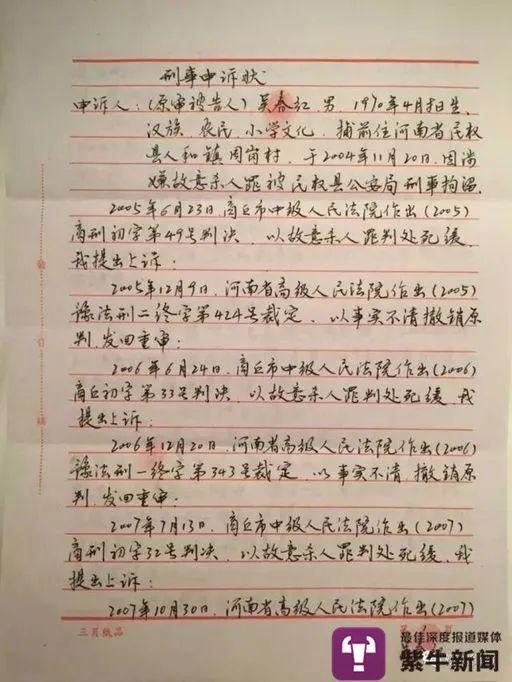 刑事申诉状
申诉人:(原审被告人)吴春红,男,1970年4月 日生,
汉族,农民,小学文化,捕前住河南省民权
县人和镇周岗村,于2004年11月20日,因涉
嫌故意杀人罪被民权县公安局刑事拘留。
2005年6月23日,商丘市中级人民法院作出(2005)
商刑初字第49号判决,以故意杀人罪判处死缓,
我提出上诉;
2005年12月9日,河南省高级人民法院作出(2005)
豫法刑二终字第424号裁定,以事实不清撤销原
判,发回重审;
2006年6月24日,商丘市中级人民法院作出(2006)
商丘初字第33号判决,以故意杀人罪判处死缓,我
提出上诉;
2006年12月20日,河南省高级人民法院作出(2006)
豫法刑一终字第343号裁定,以事实不清,撤销原
判,发回重审;
2007年7月13日,商丘市中级人民法院作出(2007)
商刑初字32号判决,以故意杀人罪判处死缓,我
提出上诉;
2007年10月30日,河南省高级人民法院作出(2007)
三月纸品
最佳深度报道媒体
紫牛新闻